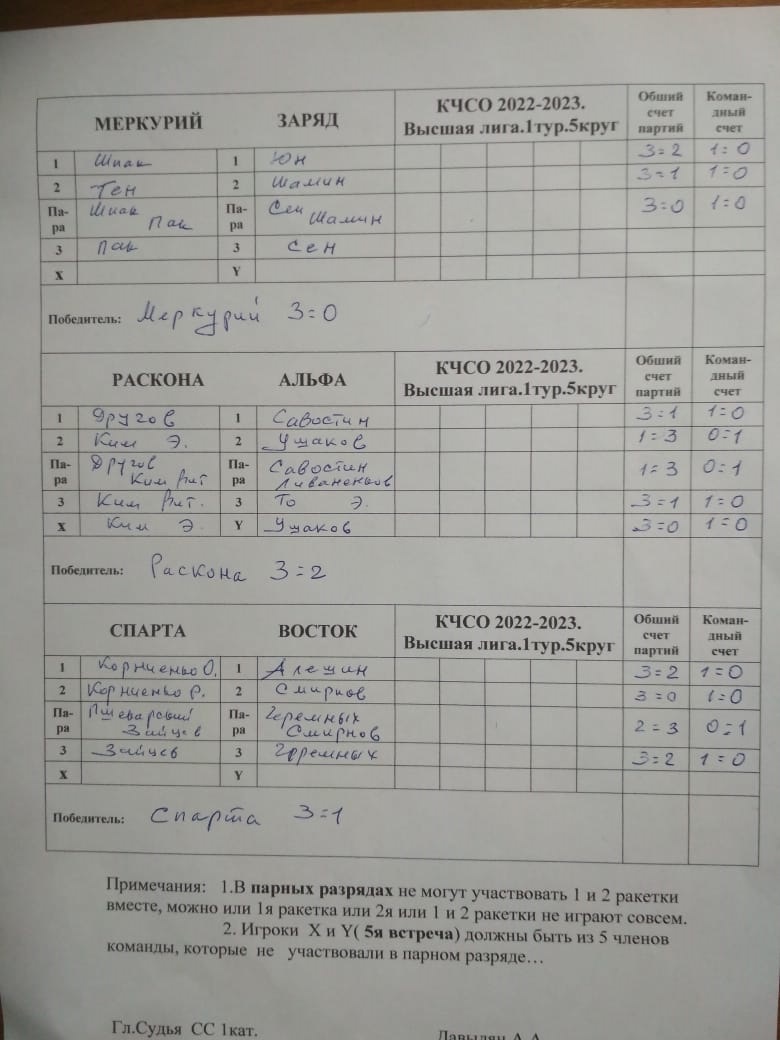 МЕРКУРИЙ ЗАРЯД КЧСО 2022-2023. Высшая лига.1тур.5круг Обший счет партий Коман-дный счет
1 Шпак 1 Юн 3=2 1=0
2 Тен 2 Шамин 3=1 1=0
Па-ра Шпак Пак Па-ра Сен Шамин 3=0 1=0
3 Пак 3 Сен
X Y
Победитель: Меркурий 3=0
РАСКОНА АЛЬФА КЧСО 2022-2023. Высшая лига.1тур.5круг Обший счет партий Коман-дный счет
1 Другов 1 Савостин 3=1 1=0
2 Ким Э. 2 Ушаков 1=3 0=1
Па-ра Другов Ким Вит Па-ра Савостин 1=3 0=1
3 Ким Вит. 3 То Э. 3=1 1=0
X Ким Э. Y Ушаков 3=0 1=0
Победитель: Раскона 3=2
СПАРТА ВОСТОК КЧСО 2022-2023. Высшая лига.1тур.5круг Обший счет партий Коман-дный счет
1 Корниенко О. 1 Алешин 3=2 1=0
2 Корниенко Р. 2 Смирнов 3=0 1=0
Па-ра Зайцев Па-ра Черемных Смирнов 2=3 0=1
3 Зайцев 3 Черемных 3=2 1=0
X Y
Победитель: Спарта 3=1
Примечания: 1.В парных разрядах не могут участвовать 1 и 2 ракетки
вместе, можно или 1я ракетка или 2я или 1 и 2 ракетки не играют совсем.
2. Игроки X и Y( 5я встреча) должны быть из 5 членов
команды, которые не участвовали в парном разряде…
Гл.Судья СС 1кат.